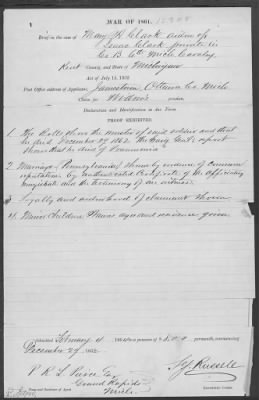 WAR OF 1861.
Brief in the case of Mary R Clark widow of
Isaac Clark private in
Co B 6th Mich Cavalry
Kent County, and State of Michigan
Act of July 14, 1862
Post Office address of Applicant, Jamestown Ottawa Co Mich
Claim for Widow's pension.
Declaration and Identification in due Form.
PROOF EXHIBITED.
1. The Rolls show the muster of said soldier and that
he died December 29 1862. The Surg Genl's report
shows that he died of Pneumonia
2. Marriage (Pennsylvania) shown by evidence of common
reputation, by Certificate of the officiating
Magistrate and the testimony of an witness.
3. Loyalty and widowhood of claimant shown
4. Minor Children Names ages and residence given
Admitted February 11 186 to a pension of $8.00 per month, commencing
December 29 1862
P R L Peirce Esq
Grand Rapids
Mich
Name and Residence of Agent.
Russell
Examining Clerk.